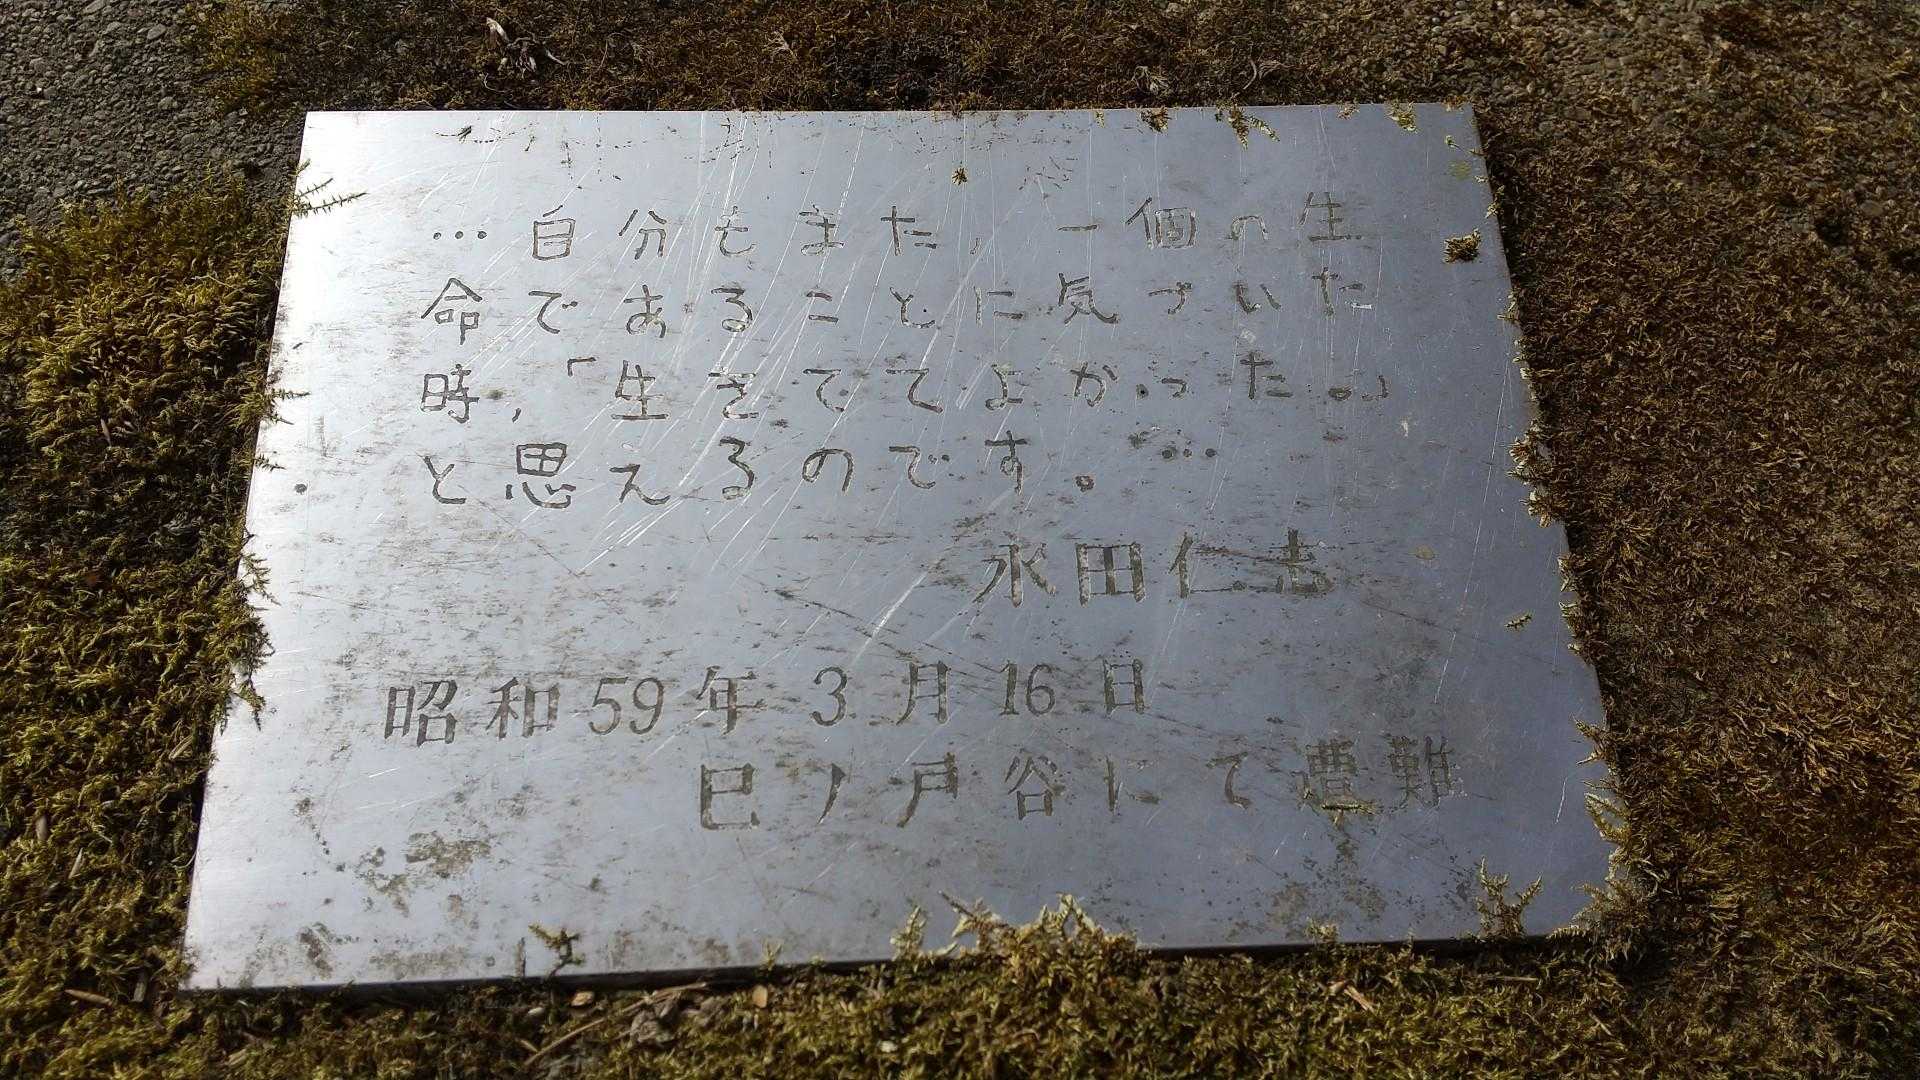 …自分もまた，一個の生
命であることに気づいた
時，「生きててよかった。」
と思えるのです。…
永田仁志
昭和59年 3月16日
巳ノ戸谷にて遭難